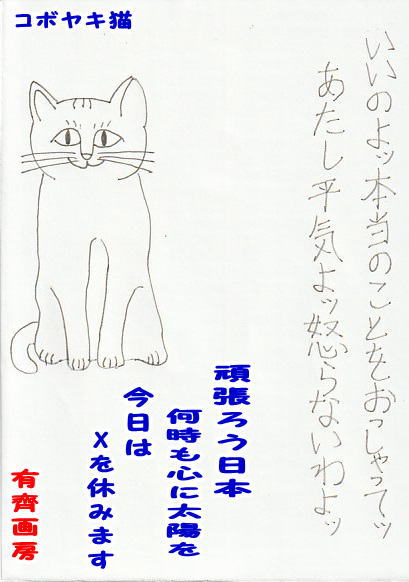 コボヤキ猫
いいのよッ本当のことをおっしゃってッ
あたし平気よッ怒らないわよッ
頑張ろう日本
何時も心に太陽を
今日は
Xを休みます
有齊画房